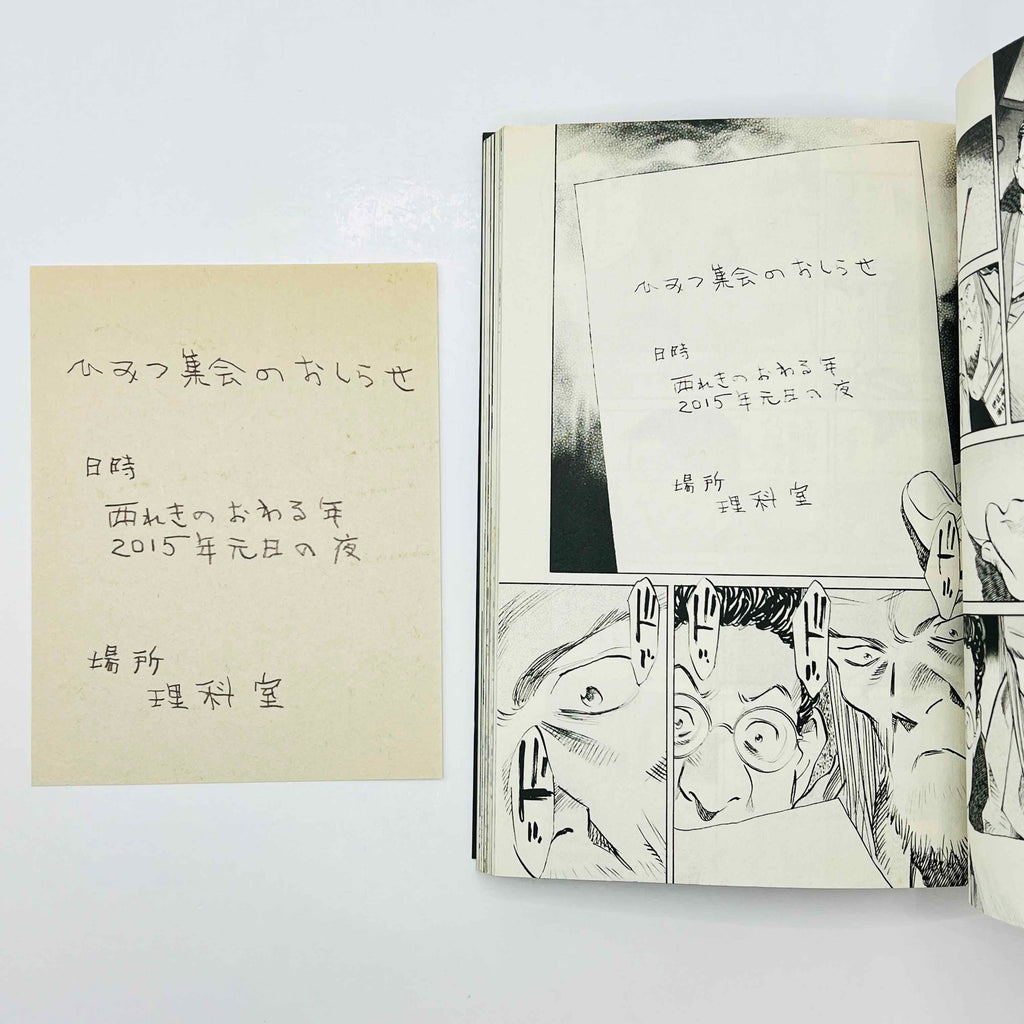 ひみつ集会のおしらせ
日時
西れきのおわる年
2015年元日の夜
場所
理科室
ひみつ集会のおしらせ
日時
西れきのおわる年
2015年元日の夜
場所
理科室
ド
ド
ド
ド
ド